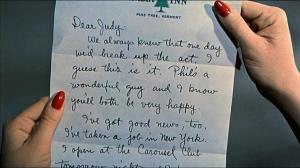 INN
PINE TREE, VERMONT
Dear Judy,
We always knew that one day
we'd break up the act. I
guess this is it. Phil's a
wonderful guy and I know
you'll both be very happy.
I've got good news, too.
I've taken a job in New York.
I open at the Carousel Club
tomorrow night